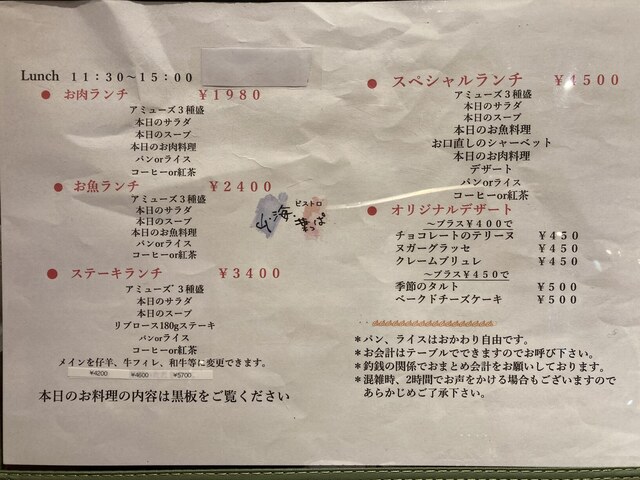 Lunch 11:30~15:00
● お肉ランチ ￥1980
アミューズ３種盛
本日のサラダ
本日のスープ
本日のお肉料理
パンorライス
コーヒーor紅茶
● お魚ランチ ￥2400
アミューズ３種盛
本日のサラダ
本日のスープ
本日のお魚料理
パンorライス
コーヒーor紅茶
● ステーキランチ ￥3400
アミューズ３種盛
本日のサラダ
本日のスープ
リブロース180gステーキ
パンorライス
コーヒーor紅茶
メインを仔羊、牛フィレ、和牛等に変更できます。
¥4200 ¥4800 ¥5700
本日のお料理の内容は黒板をご覧ください
ビストロ
山・海・葉っぱ
● スペシャルランチ ￥4500
アミューズ３種盛
本日のサラダ
本日のスープ
本日のお魚料理
お口直しのシャーベット
本日のお肉料理
デザート
パンorライス
コーヒーor紅茶
● オリジナルデザート
～プラス¥４００で
チョコレートのテリーヌ ￥４５０
ヌガーグラッセ ￥４５０
クレームブリュレ ￥４５０
～プラス¥４５０で
季節のタルト ￥５００
ベークドチーズケーキ ￥５００
＊パン、ライスはおかわり自由です。
＊お会計はテーブルでできますのでお呼び下さい。
＊釣銭の関係でおまとめ会計をお願いしております。
＊混雑時、2時間でお声をかける場合もございますので
あらかじめご了承下さい。